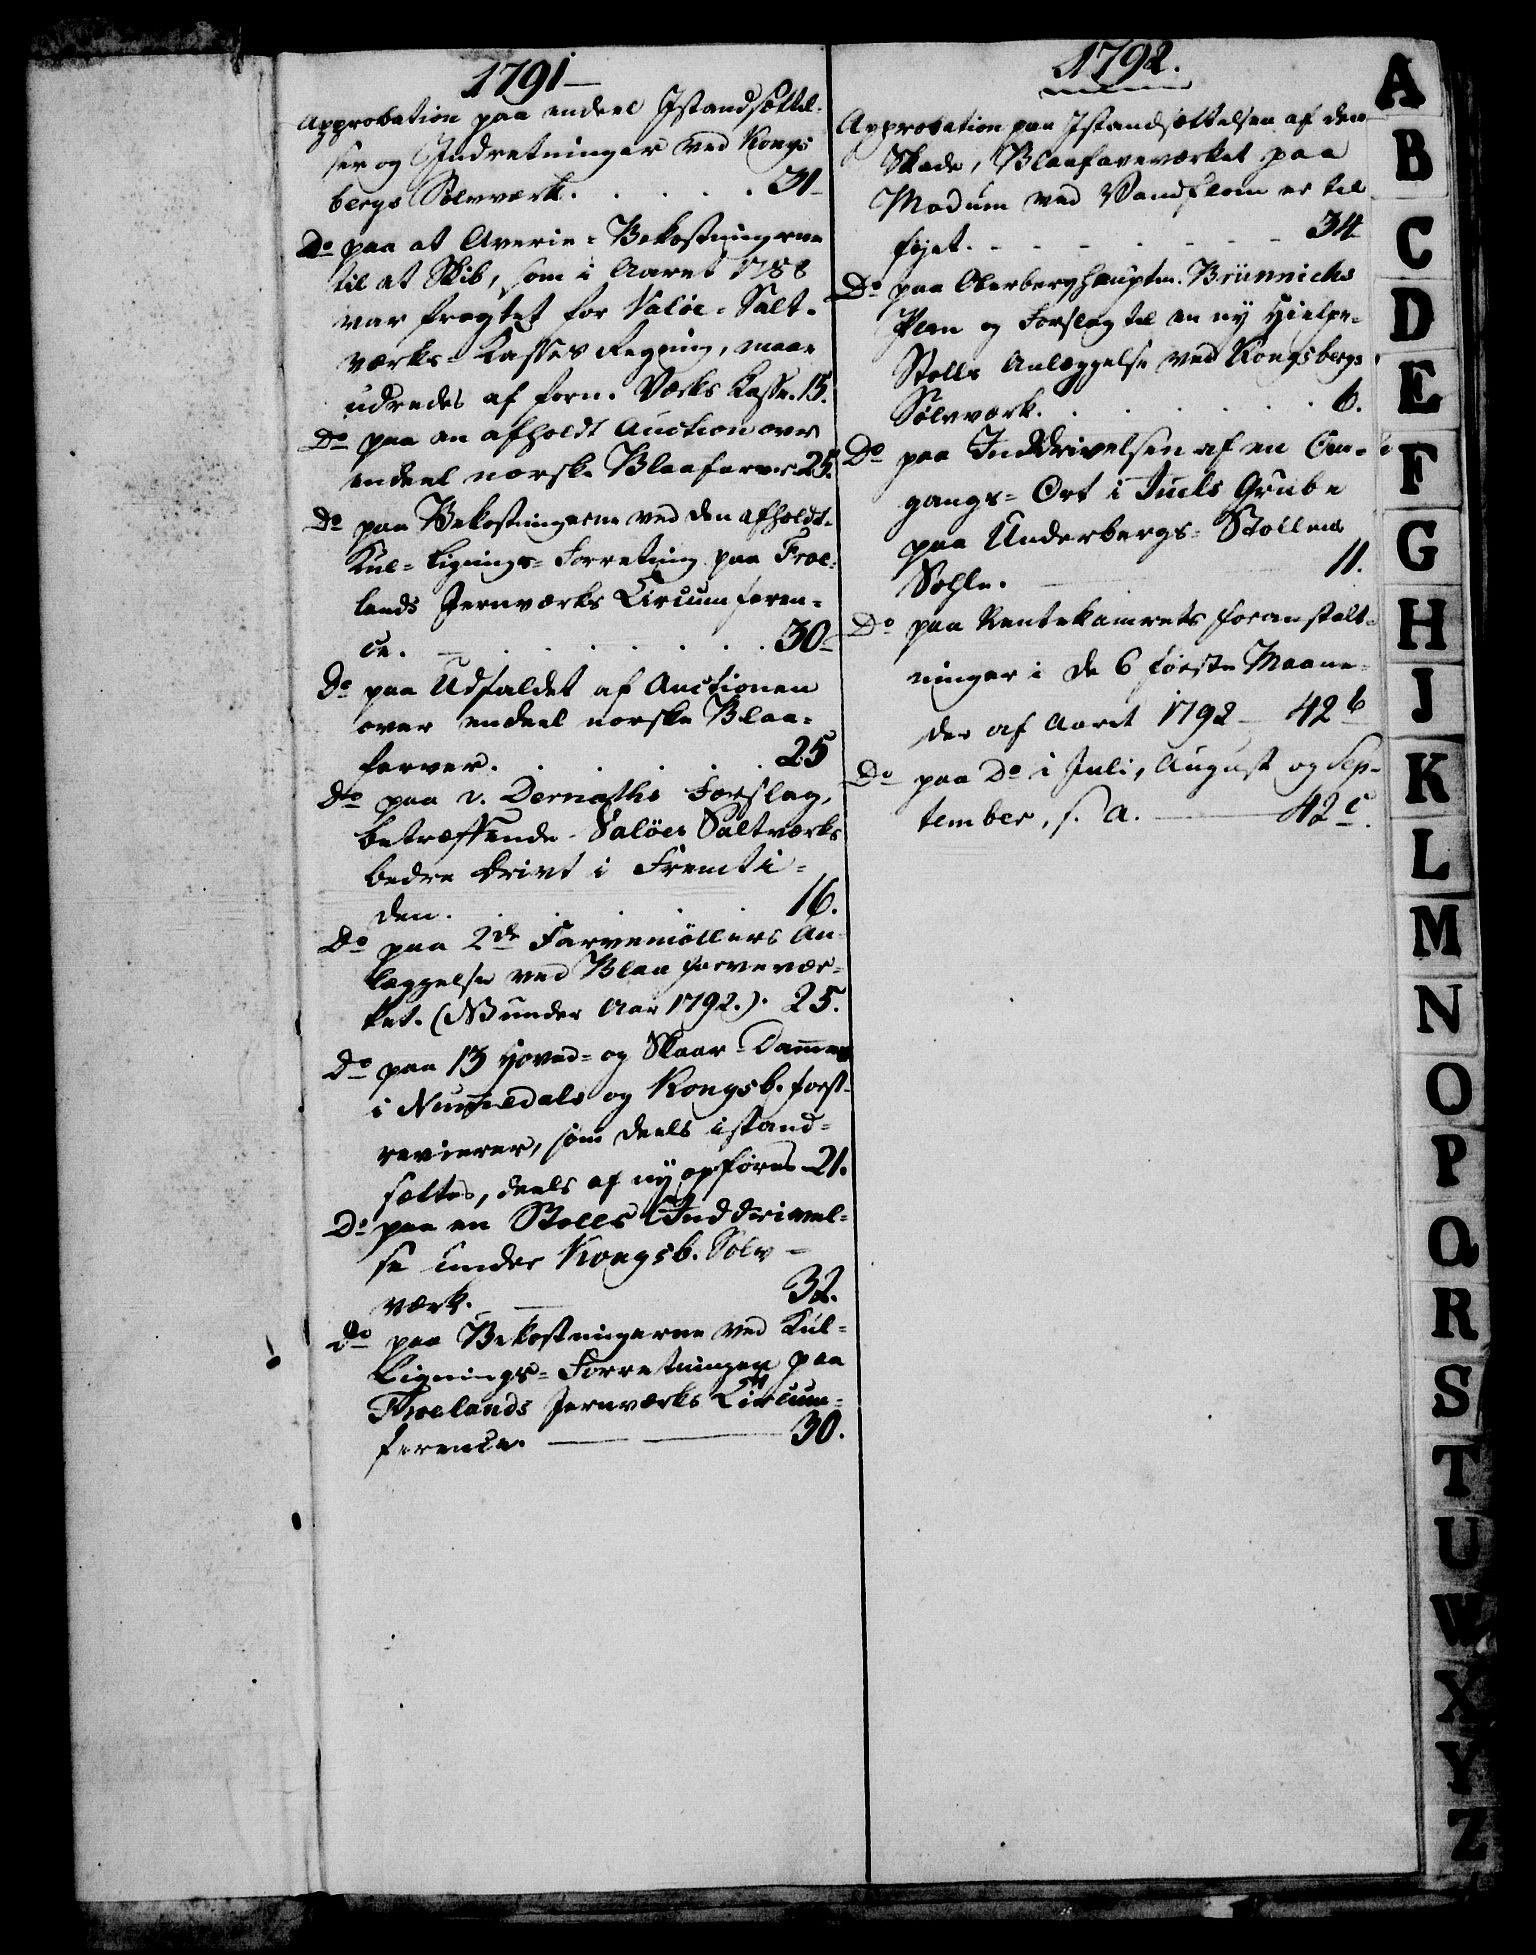 1791
Approbation paa endeel Istandsættel-
ser og Indretninger ved Kongs
bergs Sølvværk. 31
Do paa at Averie-Bekostningerne
til at Skib, som i Aaret 1788
var fragtet for Valøe-Salt-
værks-Casses Regning, maae
udredes af forn. Værks Casse. 15.
Do paa en afholdt Auction over
endeel norske Blaafarver 25.
Do paa Bekostningerne ved den afholdte
Kul-Lignings-Forretning paa Froe-
lands Jernværks Circumferen-
ce. 30
Do paa Udfaldet af Auctionen
over endeel norske Blaa-
farver. 25
Do paa v. Dernaths Forslag,
betræffende Valöes Saltværks
bedre Drivt i Fremti-
den. 16.
Do paa 2de Farvemöllers An-
læggelse ved Blaafarvevær-
ket. (NB under Aar 1792.). 25.
Do paa 13 Hoved- og Skaar-Damme
i Nummedals og Kongsb. forst-
revierer, som deels istand-
sættes, deels af ny opføres 21.
Do paa en Stolls Inddrivel-
se under Kongsb. Sølv-
værk. 32.
Do paa Bekostningerne ved Kul-
Lignings-Forretningen paa
Froelands Jernværks Circum-
ference. 30.
1792.
Approbation paa Istandsættelsen af den
Skade, Blaafarveværket paa
Modum ved Vandflom er til
føjet. 34
Do paa Oberberghauptm. Brünnichs
Plan og Forslag til en ny Hielpe-
Stolls Anlæggelse ved Kongsbergs
Sølvværk. 6.
Do paa Inddrivelsen af en
gangs-Ort i Juels Grube
paa Underbergs-Stollens
Sohle. 11.
Do paa Rentekamrets foranstalt-
ninger i de 6 første Maane-
der af Aaret 1792 42 b
Do paa Do i Juli, August og Sep-
tember, s. A. 42 c.
A
B
C
D
E
F
G
H
J
K
L
M
N
O
P
Q
R
S
T
U
W
X
Y
Z